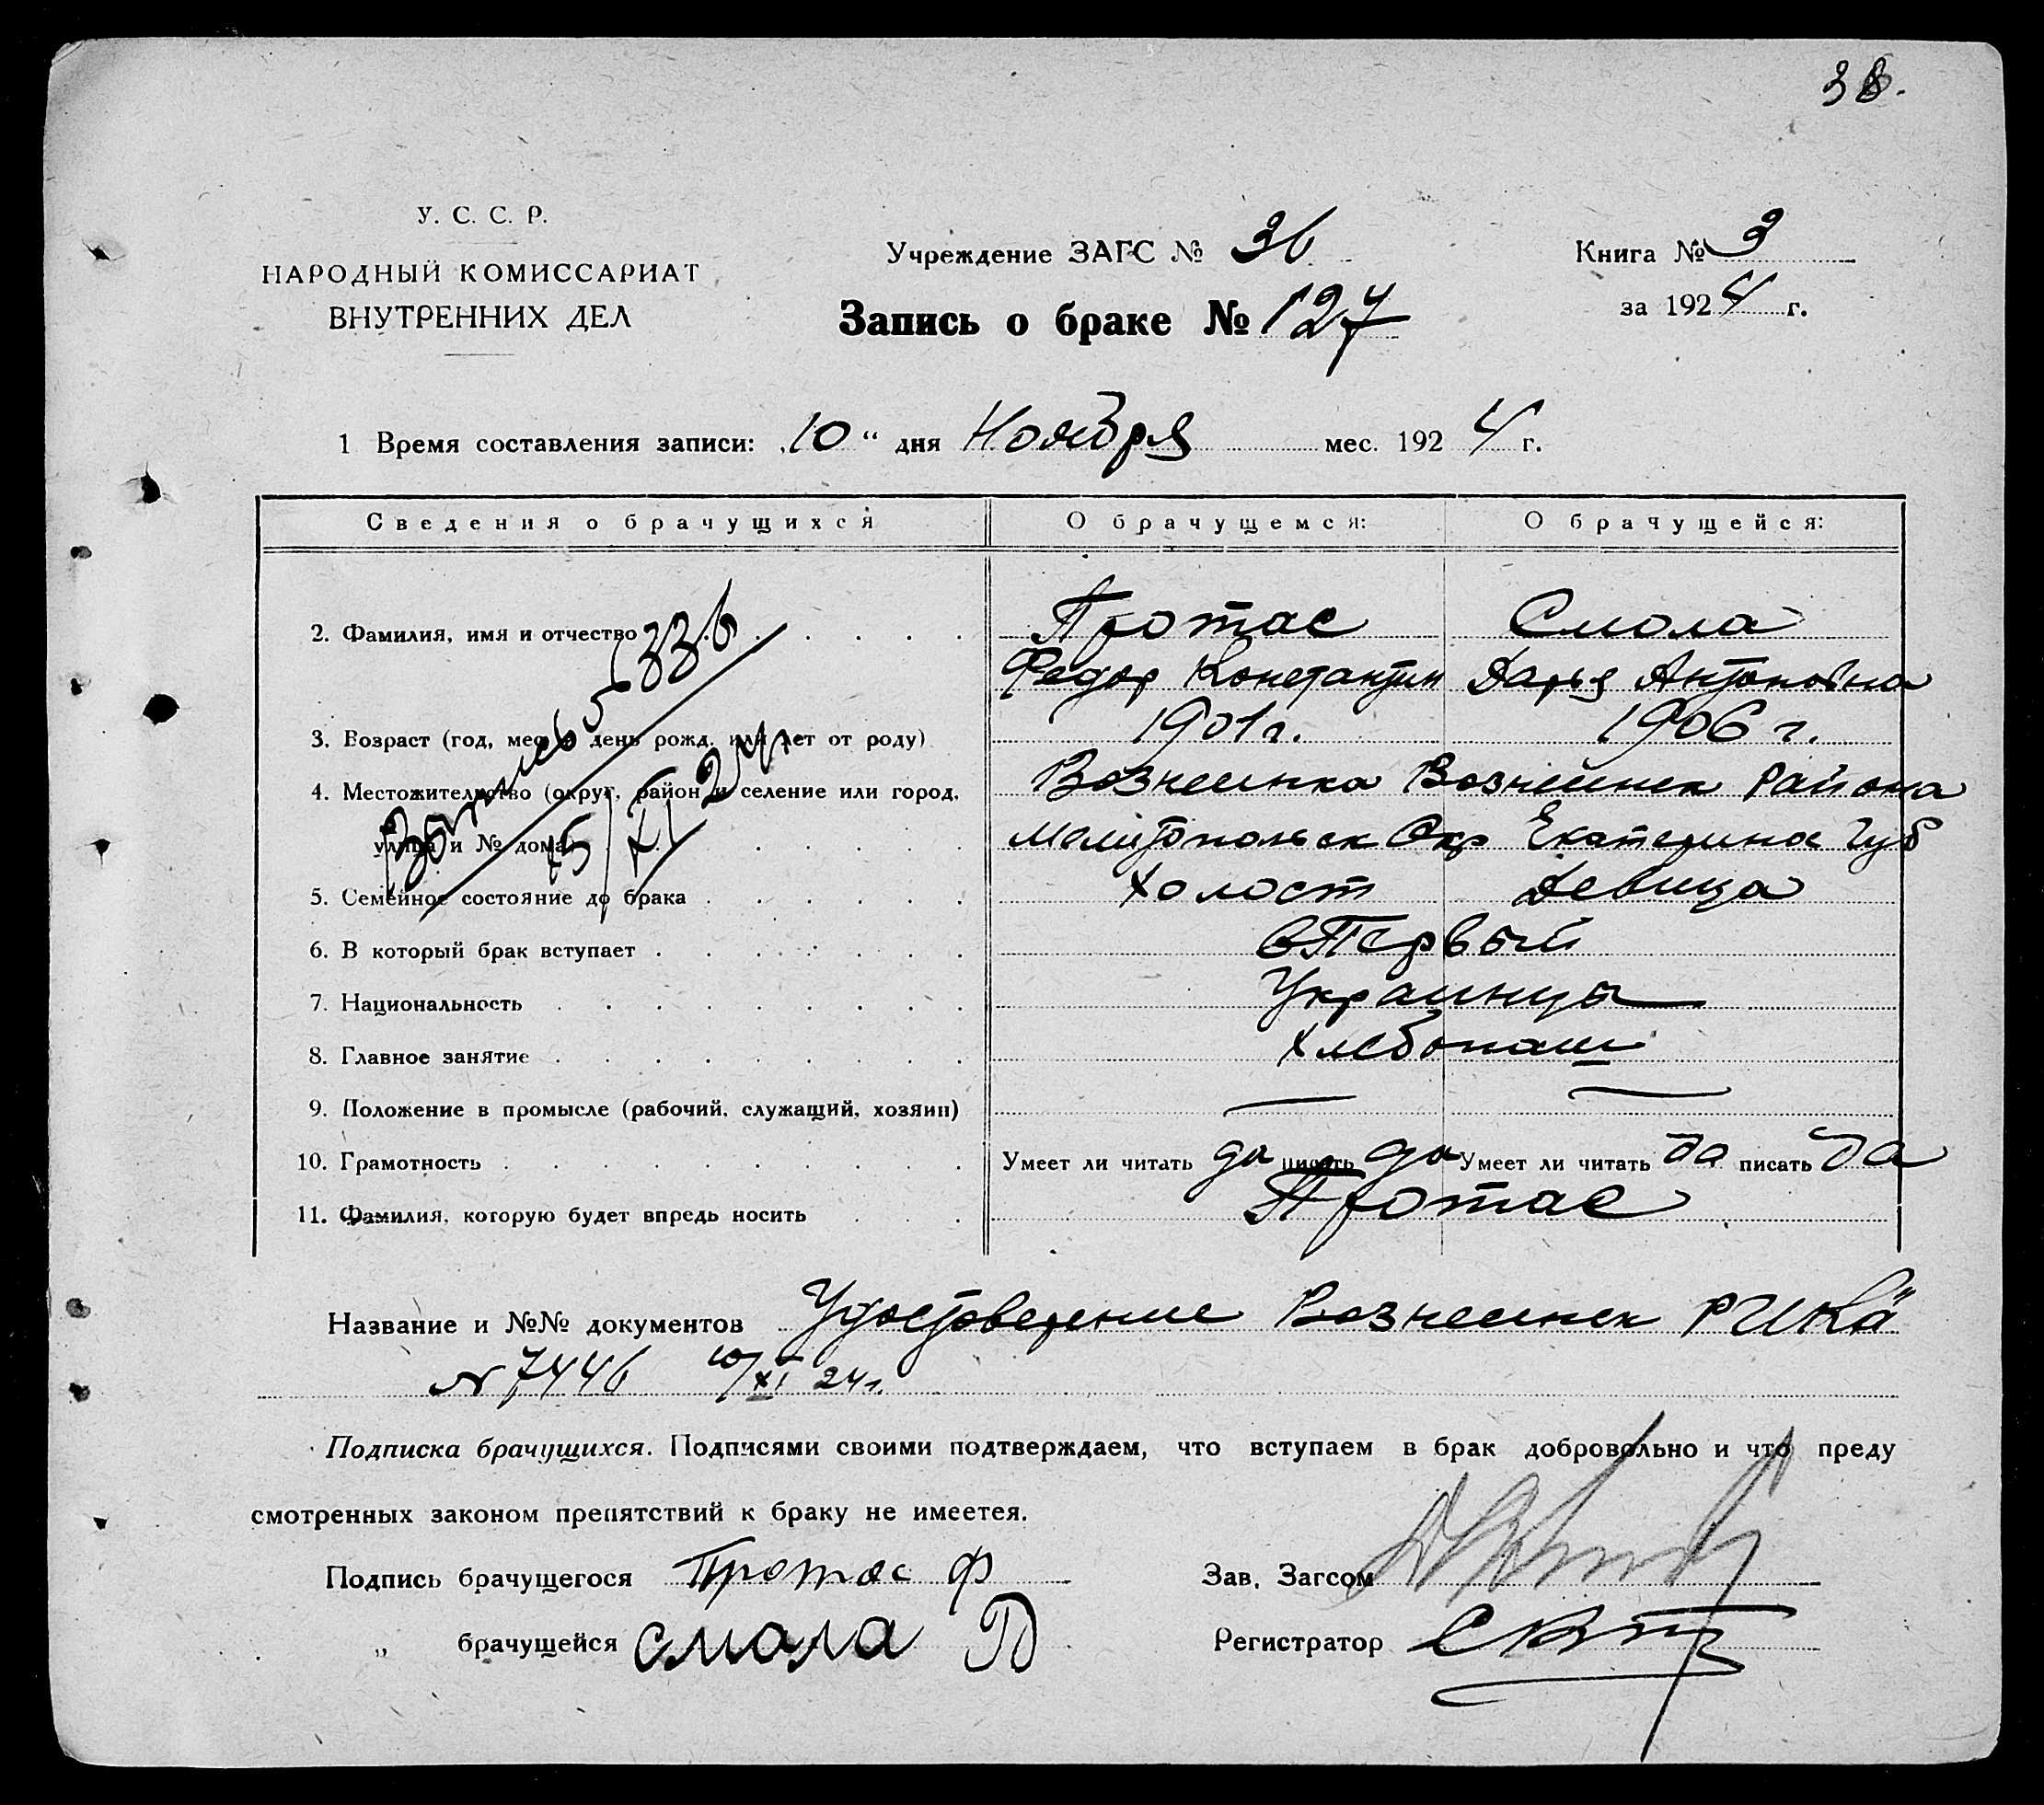 38.
У. С. С. Р.
НАРОДНЫЙ КОМИССАРИАТ
ВНУТРЕННИХ ДЕЛ
Учреждение ЗАГС № 36
Запись о браке № 127
Книга № 3
за 1924 г.
1 Время составления записи: „10“ дня Ноября мес. 1924 г.
Сведения о брачущихся О брачущемся: О брачущейся:
2. Фамилия, имя и отчество Протас Смола
Федор Константин Дарья Антоновна
3. Возраст (год, мес. и день рожд. или лет от роду) 1901 г. 1906 г.
4. Местожительство (округ, район и селение или город, Вознесинка Вознесинск Района
улица и № дома) Мелитопольск Окр Екатеринос Губ
5. Семейное состояние до брака Холост Девица
6. В который брак вступает в Первый
7. Национальность Украинцы
8. Главное занятие Хлебопаш
9. Положение в промысле (рабочий, служащий, хозяин) — —
10. Грамотность Умеет ли читать да писать да Умеет ли читать да писать да
11. Фамилия, которую будет впредь носить Протас
5336
15/XI 24 г.
Название и №№ документов Удостоверение Вознесинск РИКа
№ 7446 10/XI 24 г.
Подписка брачущихся. Подписями своими подтверждаем, что вступаем в брак добровольно и что преду
смотренных законом препятствий к браку не имеетея.
Подпись брачущегося Протас Ф
Зав. Загсом
„ брачущейся Смола Д
Регистратор